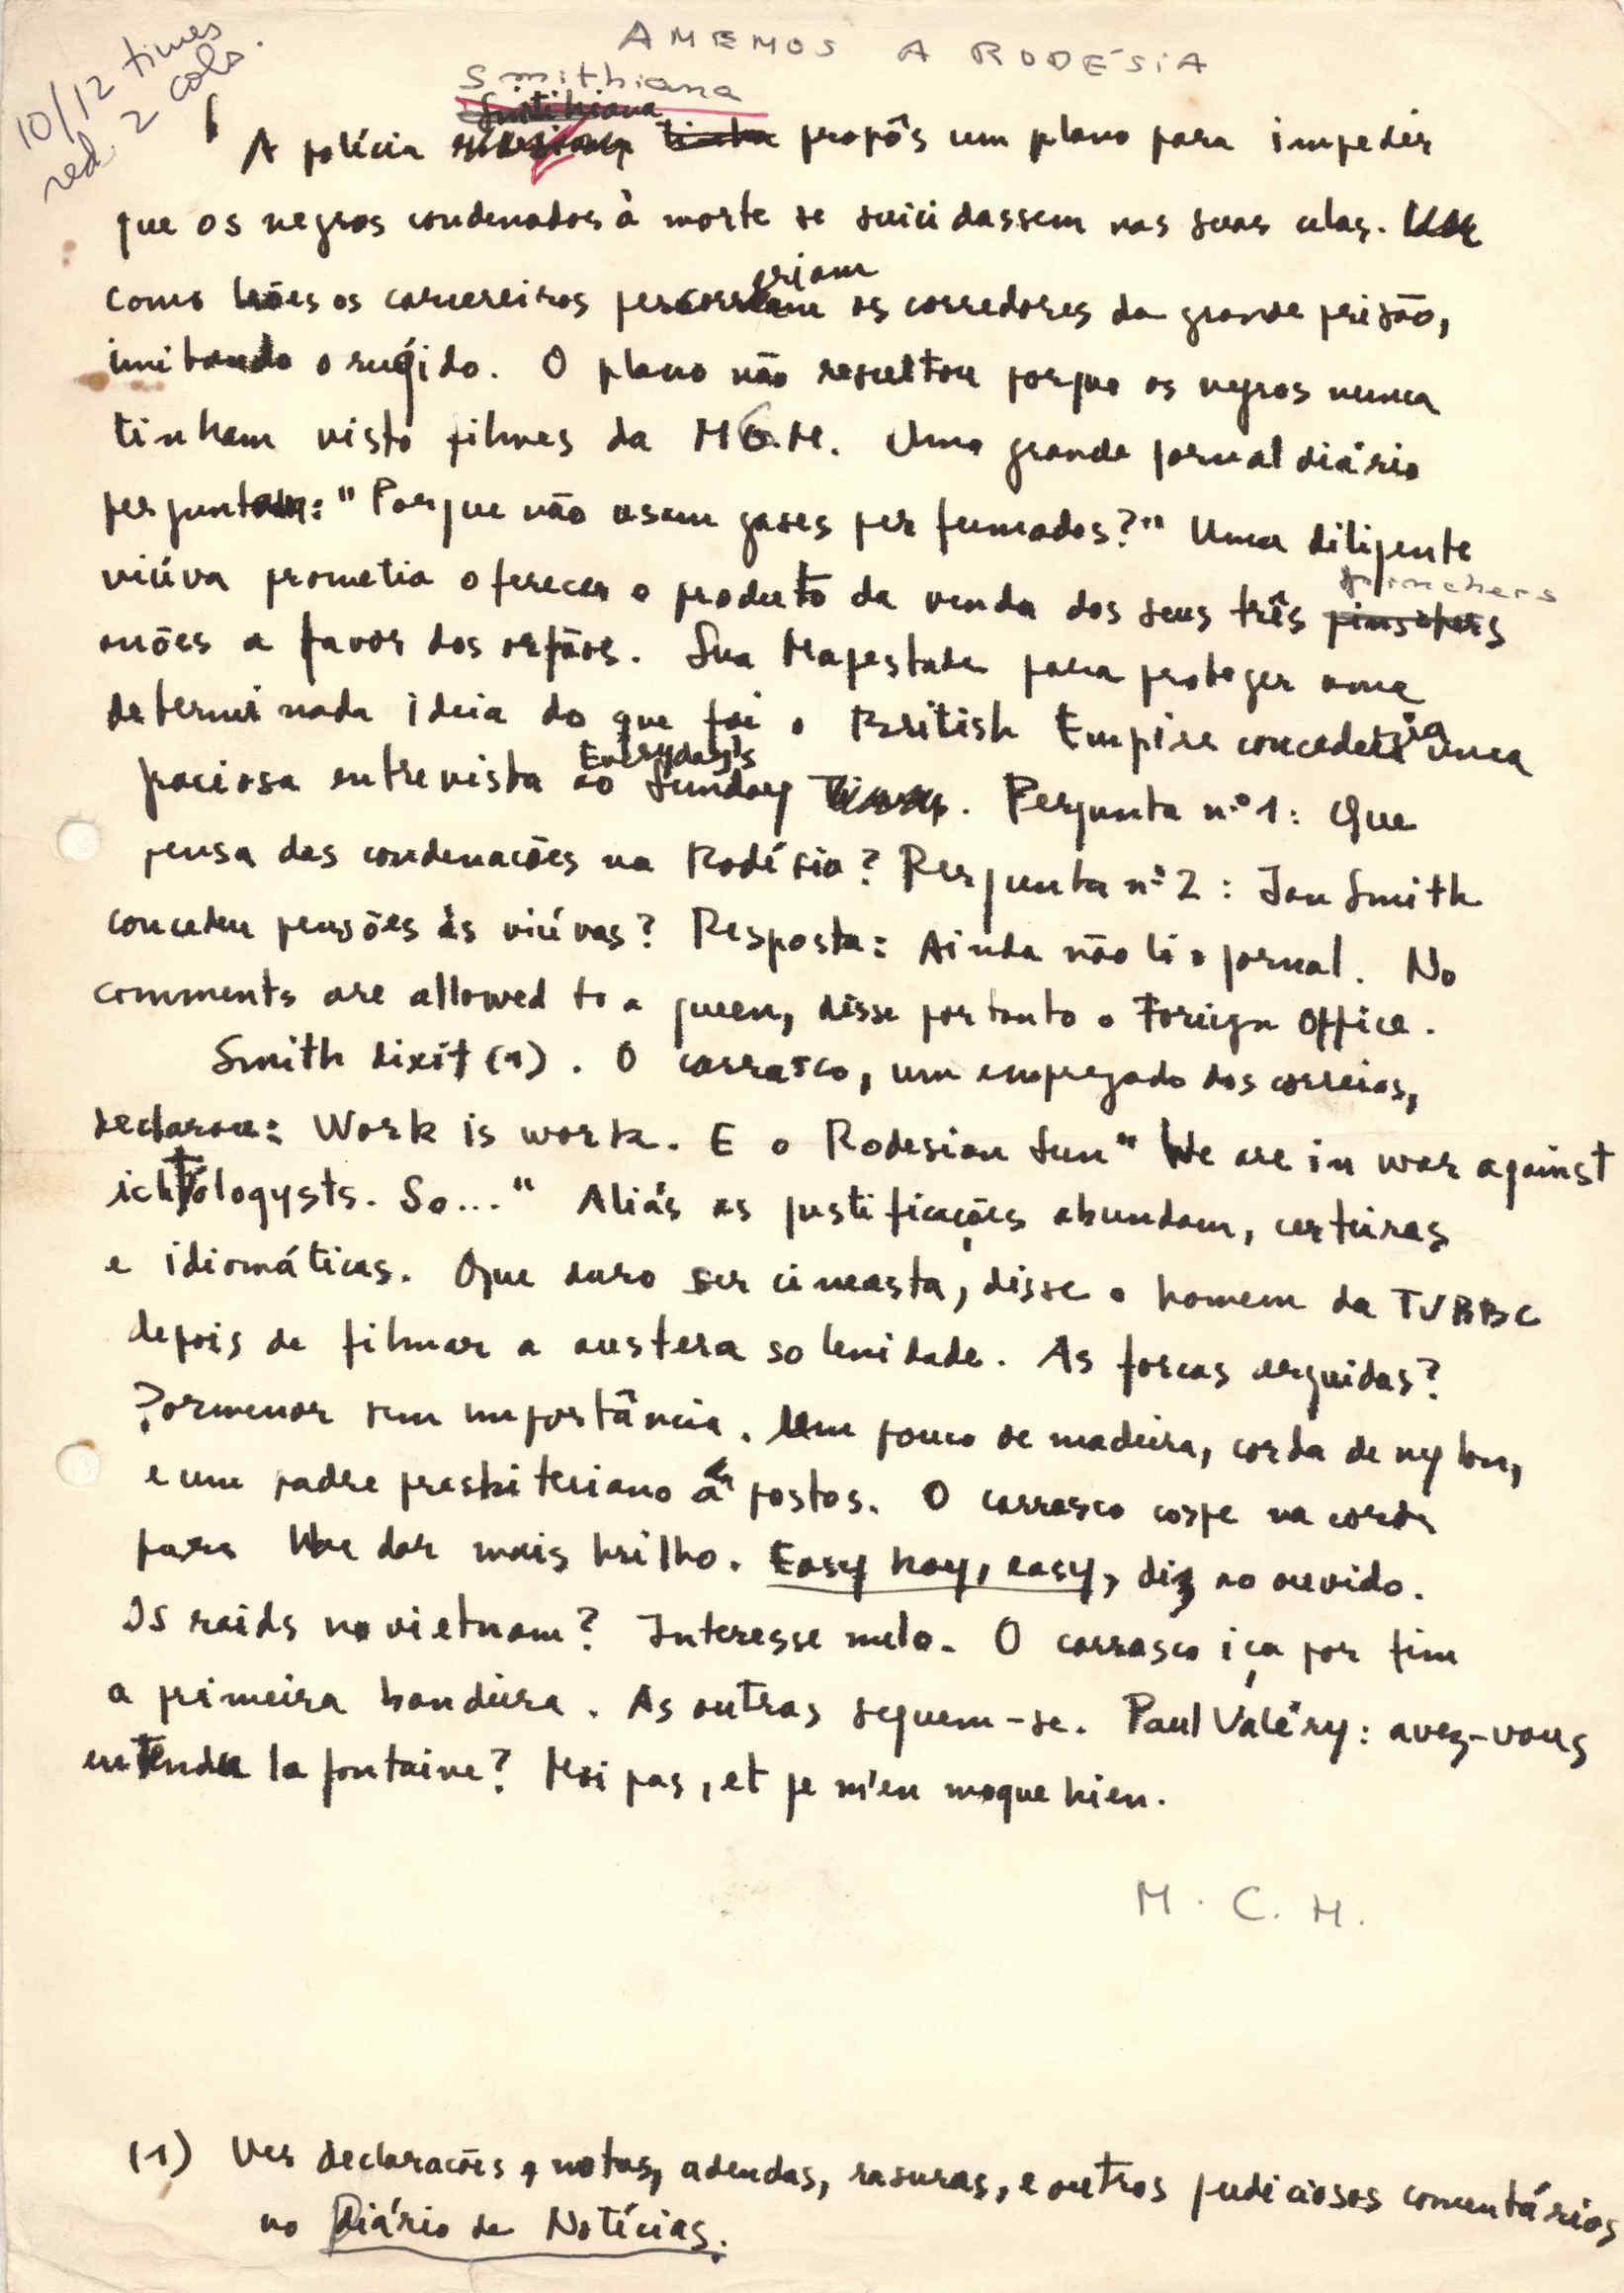 10/12 times
red. 2 cols.
AMEMOS A RODÉSIA
Smithiana
Smithiana
A polícia tinha propôs um plano para impedir
que os negros condenados à morte se suicidassem nas suas celas.
Como leões os carcereiros percorreriam os corredores da grande prisão,
imitando o rugido. O plano não resultou porque os negros nunca
tinham visto filmes da M.G.M. Uma grande jornal diário
perguntou: "Porque não usam gases perfumados?" Uma diligente
viúva prometia oferecer o produto da venda dos seus três pinschers
anões a favor dos orfãos. Sua Majestade para proteger uma
determinada ideia do que foi o British Empire concederia uma
graciosa entrevista ao Everyday's Sunday Times. Pergunta nº 1: Que
pensa das condenações na Rodésia? Pergunta nº 2: Ian Smith
concedeu pensões às viúvas? Resposta: Ainda não li o jornal. No
comments are allowed to a queen, disse portanto o Foreign Office.
Smith dixit (1). O carrasco, um empregado dos correios,
declarou: Work is work. E o Rodesian Sun "We are in war against
ichtólogysts. So..." Aliás as justificações abundam, certeiras
e idiomáticas. Que duro ser cineasta, disse o homem da TVBBC
depois de filmar a austera solenidade. As forcas erguidas?
Pormenor sem importância. Um pouco de madeira, corda de nylon,
e um padre presbiteriano a postos. O carrasco cospe na corda
para lhe dar mais brilho. Easy boy, easy, diz ao ouvido.
Os raids no vietnam? Interesse nulo. O carrasco iça por fim
a primeira bandeira. As outras seguem-se. Paul Valéry: avez-vous
entendu la fontaine? Moi pas, et je m'en moque bien.
M. C. H.
(1) Ver declarações, notas, adendas, rasuras, e outros judiciosos comentários
no Diário de Notícias.